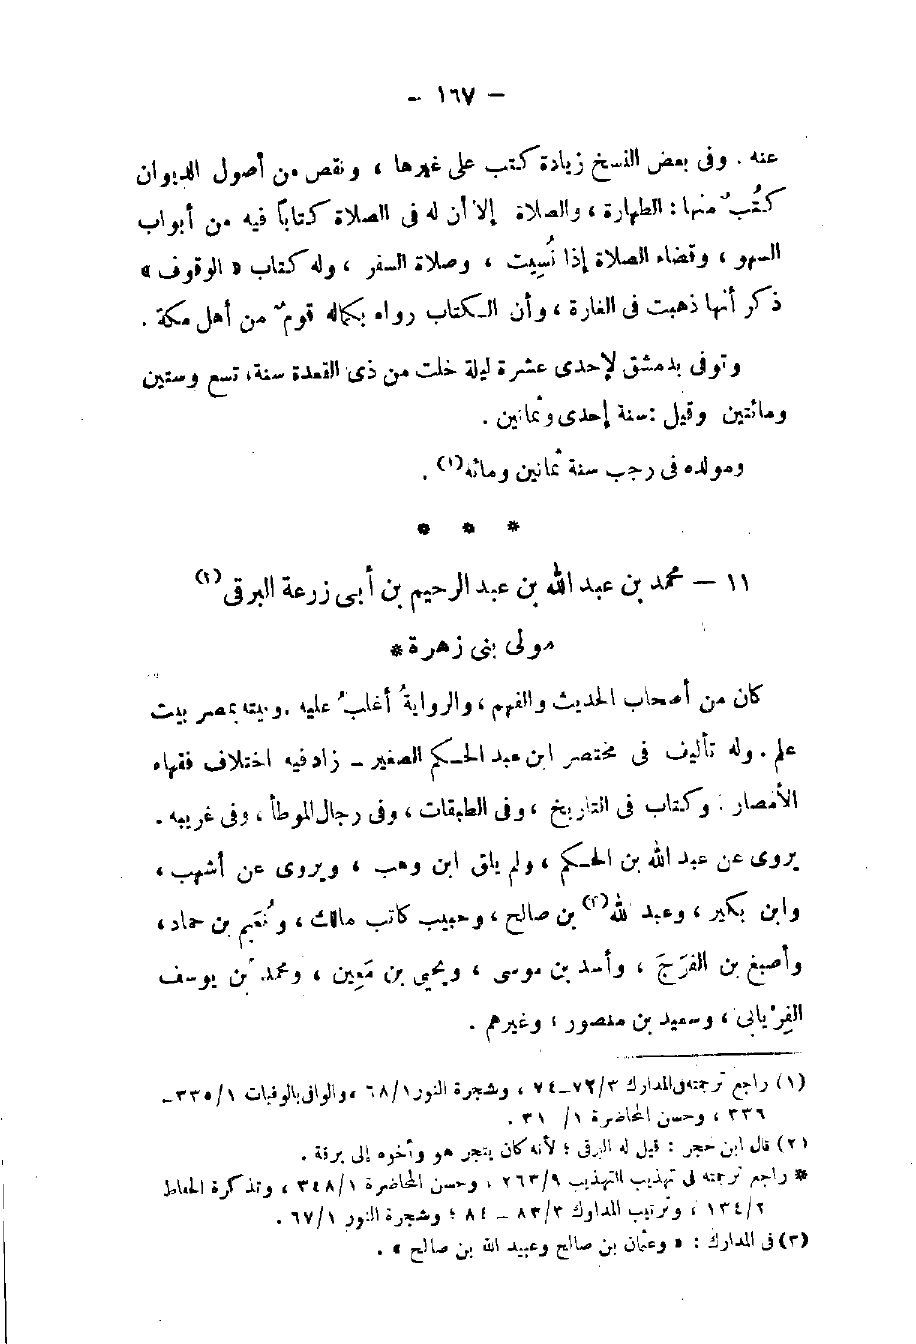 — ١٦٧ —
عنه . وفى بعض النسخ زيادة كتب على غيرها ، ونقص من أصول الديوان
كتُبٌ منها : الطهارة ، والصلاة إلا أن له فى الصلاة كتاباً فيه من أبواب
السهو ، وقضاء الصلاة إذا نُسِيت ، وصلاة السفر ، وله كتاب « الوقوف »
ذكر أنها ذهبت فى الغارة ، وأن الكتاب رواه بكماله قومٌ من أهل مكة .
وتوفى بدمشق لإحدى عشرة ليلة خلت من ذى القعدة سنة، تسع وستين
ومائتين وقيل : سنة إحدى وثمانين .
ومولده فى رجب سنة ثمانين ومائه (١) .
* * *
١١ — محمد بن عبد الله بن عبد الرحيم بن أبى زرعة البرقى (٢)
مولى بنى زهرة *
كان من أصحاب الحديث والفهم ، والروايةُ أغلبُ عليه . وبيته بمصر بيت
علم . وله تأليف فى مختصر ابن عبد الحكم الصغير – زاد فيه اختلاف فقهاء
الأمصار : وكتاب فى التاريخ ، وفى الطبقات ، وفى رجال الموطأ ، وفى غريبه .
يروى عن عبد الله بن الحكم ، ولم يلق ابن وهب ، ويروى عن أشهب ،
وابن بكير ، وعبد لله (٣) بن صالح ، وحبيب كاتب مالك ، ونُعَيم بن حماد ،
وأصبغ بن الفرَجَ ، وأسد بن موسى ، ويحيى بن مَعِين ، ومحمد بن يوسف
الفِرْيابى ، وسعيد بن منصور ، وغيرهم .
(١) راجع ترجمته فى المدارك ٧٢/٣–٧٤ ، وشجرة النور ٦٨/١ ، والوافى بالوفيات ٣٣٥/١–
٣٣٦ ، وحسن المحاضرة ١/ ٣١ .
(٢) قال ابن حجر : قيل له البرقى ؛ لأنه كان يتجر هو وأخوه إلى برقة .
* راجع ترجمته فى تهذيب التهذيب ٢٦٣/٩ ، وحسن المحاضرة ٣٤٨/١ ، وتذكرة الحفاظ
١٣٤/٢ ، وترتيب المدارك ٨٣/٣ – ٨٤ ؛ وشجرة النور ٦٧/١ .
(٣) فى المدارك : « وعثمان بن صالح وعبيد الله بن صالح » .